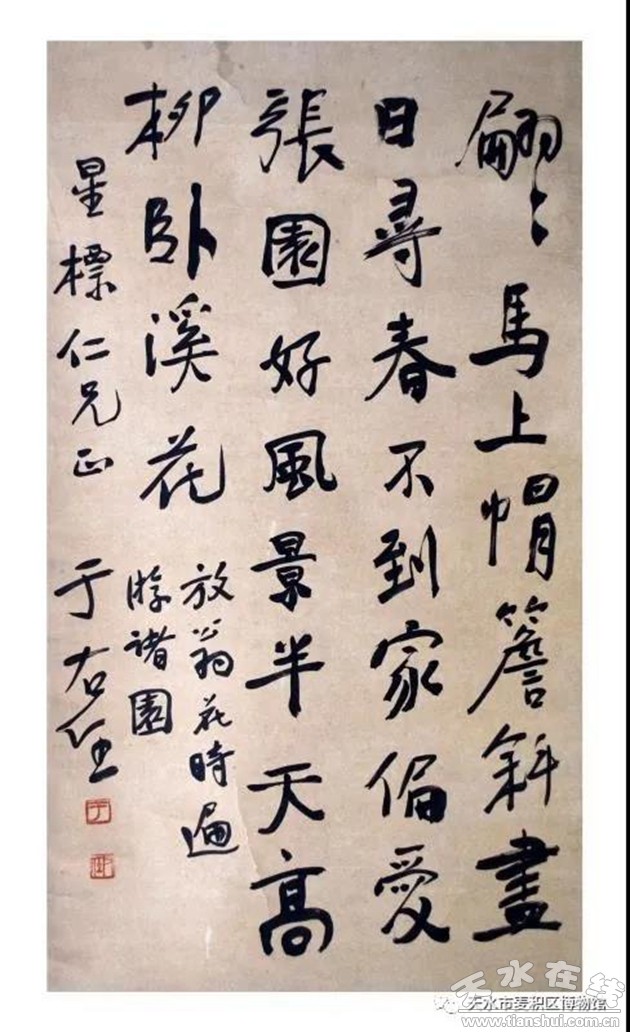 翩〻馬上帽簷斜畫
日尋春不到家偏愛
張園好風景半天高
柳臥溪花
放翁花時遍
游諸園
星標仁兄正
于右任
天水在线
天水市麦积区博物馆
www.tianshui.com.cn